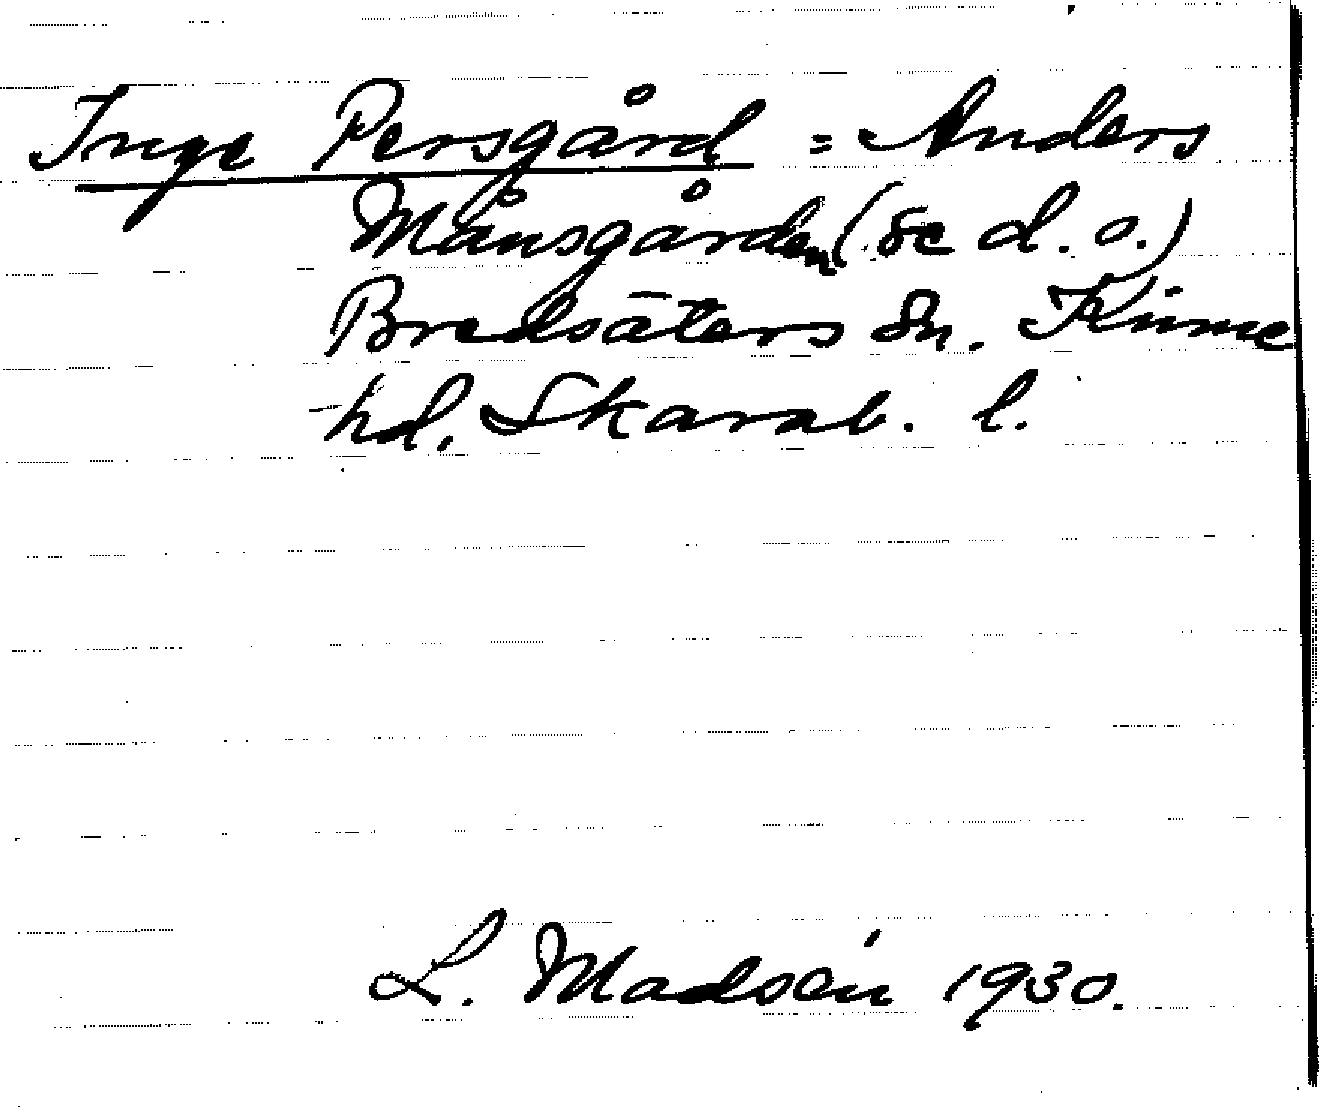 Inge Persgård = Anders
Månsgården (se d. o.)
Bredsäters Sn. Kinne
hd. Skarab. l.
L. Madsén 1930.